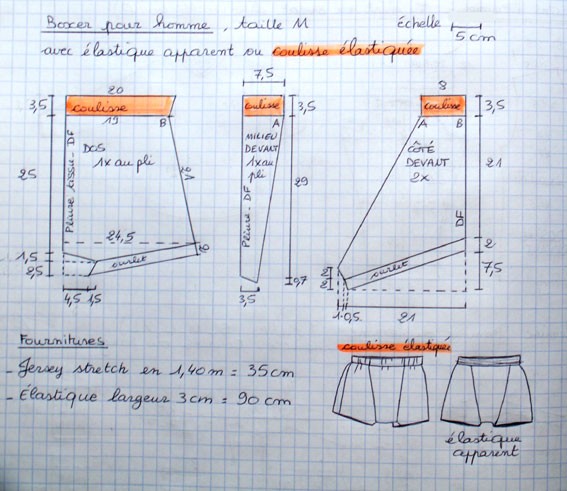 Boxer pour homme, taille M
échelle
5 cm
avec élastique apparent ou coulisse élastiquée
20
coulisse
3,5
19
B
DOS
1x au pli
Pliure tissu - DF
25
24,5
1,5
2,5
ourlet
4,5 1,5
7,5
coulisse
3,5
A
MILIEU
DEVANT
1x au
pli
Pliure - DF
29
0,7
3,5
8
coulisse
3,5
A
B
CÔTÉ
DEVANT
2x
21
DF
2
7,5
ourlet
2
2
1 0,5
21
Fournitures
- Jersey stretch en 1,40 m = 35 cm
- Elastique largeur 3 cm = 90 cm
coulisse élastiquée
élastique
apparent